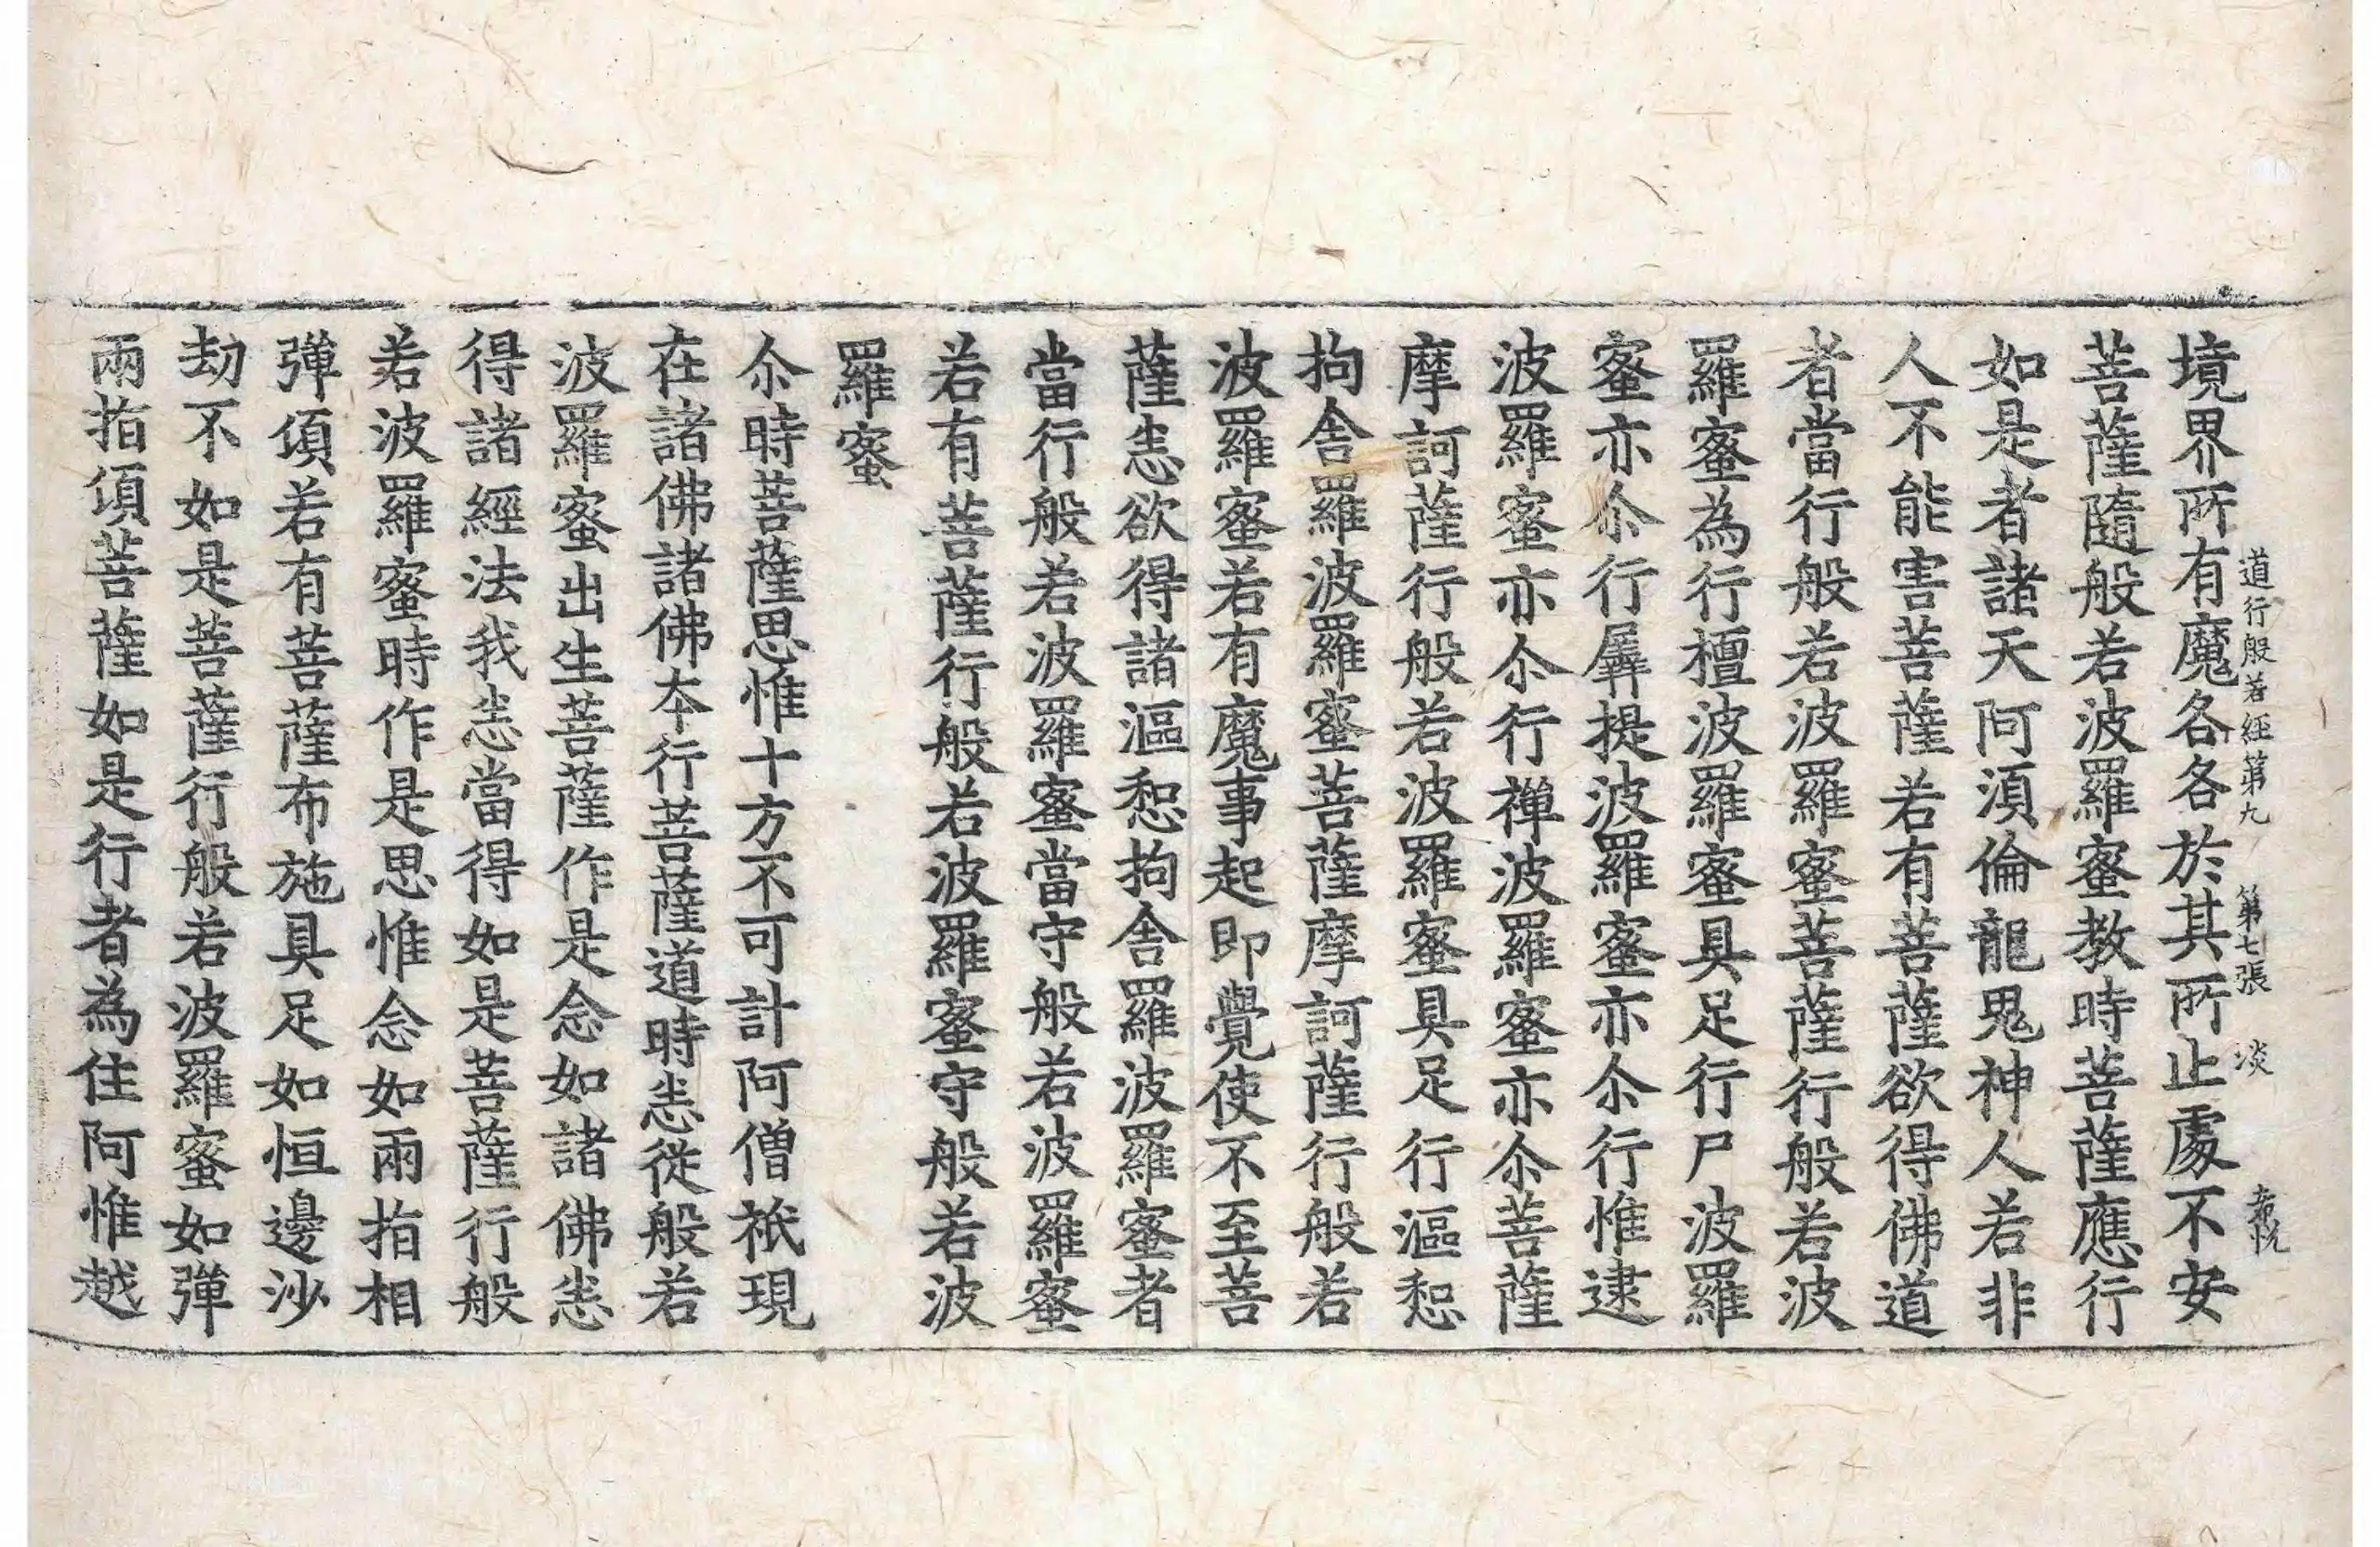 境界所有魔各各於其所止處不安
道行般若経第九 第七張 淡
菩薩隨般若波羅蜜教時菩薩應行
如是者諸天阿須倫龍鬼神人若非
人不能害菩薩若有菩薩欲得佛道
者當行般若波羅蜜菩薩行般若波
羅蜜為行檀波羅蜜具足行尸波羅
蜜亦尒行羼提波羅蜜亦尒行惟逮
波羅蜜亦尒行禅波羅蜜亦尒菩薩
摩訶薩行般若波羅蜜具足行漚惒
拘舍羅波羅蜜菩薩摩訶薩行般若
波羅蜜若有魔事起即覺使不至菩
薩悉欲得諸漚惒拘舍羅波羅蜜者
當行般若波羅蜜當守般若波羅蜜
若有菩薩行般若波羅蜜守般若波
羅蜜
尒時菩薩思惟十方不可計阿僧祇現
在諸佛諸佛夲行菩薩道時悉從般若
波羅蜜出生菩薩作是念如諸佛悉
得諸經法我悉當得如是菩薩行般
若波羅蜜時作是思惟念如兩指相
彈湏若有菩薩布施具足如恒邊沙
劫不如是菩薩行般若波羅蜜如彈
兩指湏菩薩如是行者為住阿惟越